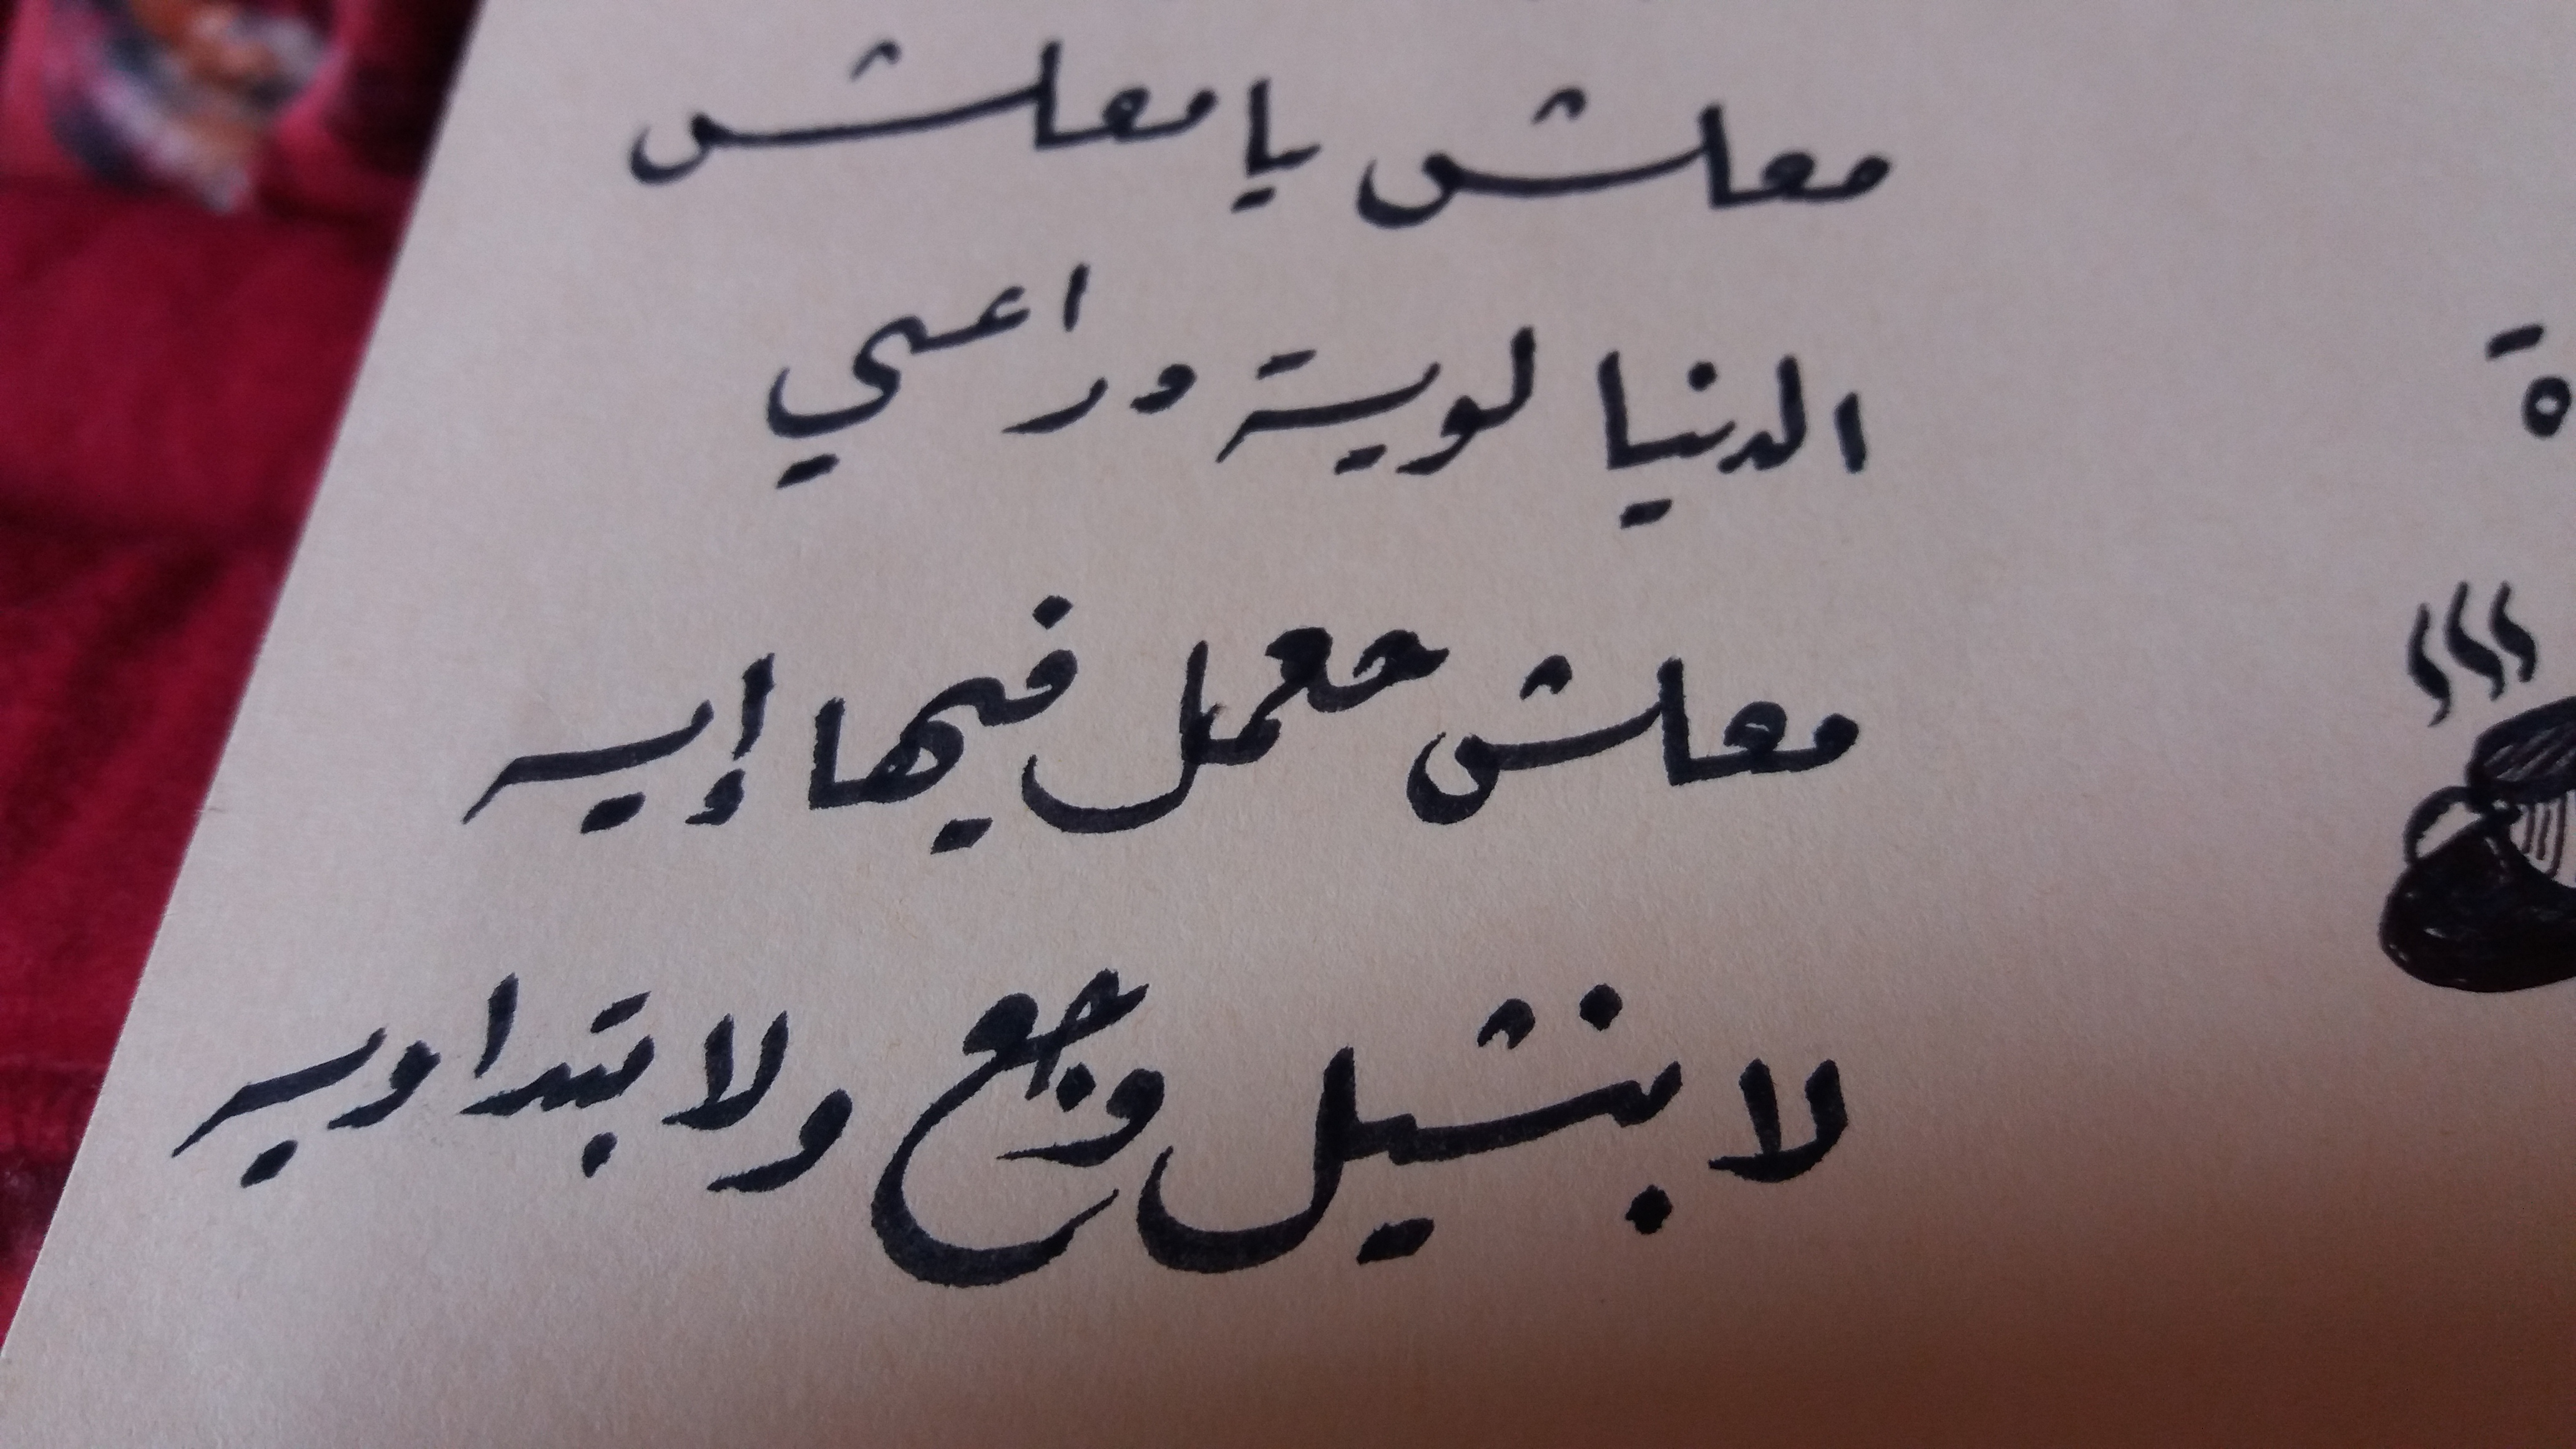 معلش يا معلش
الدنيا لوية دراعي
معلش حعمل فيها إيه
لا بنشيل وجع ولا بتداويه
ة